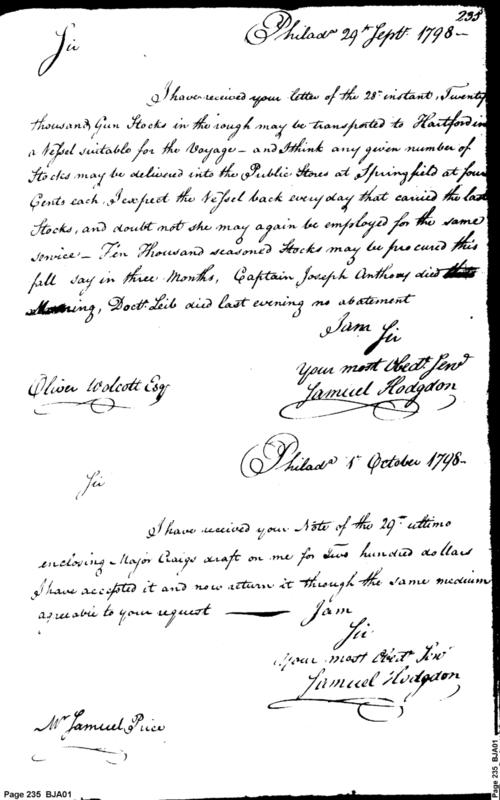 235
Philada 29th Septr. 1798-
Sir
I have received your letter of the 28th instant, Twenty
thousand Gun Stocks in the rough may be transported to Hartford in
a Vessel suitable for the Voyage - and I think any given number of
Stocks may be delivered into the Public Stores at Springfield at four
Cents each, I expect the Vessel back every day that carried the last
Stocks, and doubt not she may again be employed for the same
service - Ten Thousand seasoned Stocks may be procured this
fall say in three Months, Captain Joseph Anthony died this
Morning, Doctr. Leib died last evening no abatement
I am
Sir
Your most Obedt. Servt
Samuel Hodgdon
Oliver Wolcott Esq
Philada 1st October 1798-
Sir
I have received your Note of the 29th ultimo
enclosing Major Craigs draft on me for Two hundred dollars
I have accepted it and now return it through the same medium
agreeable to your request — I am
Sir
Your most Obedt. Servt
Samuel Hodgdon
Mr. Samuel Price
Page 235 BJA01
Page 235_BJA01